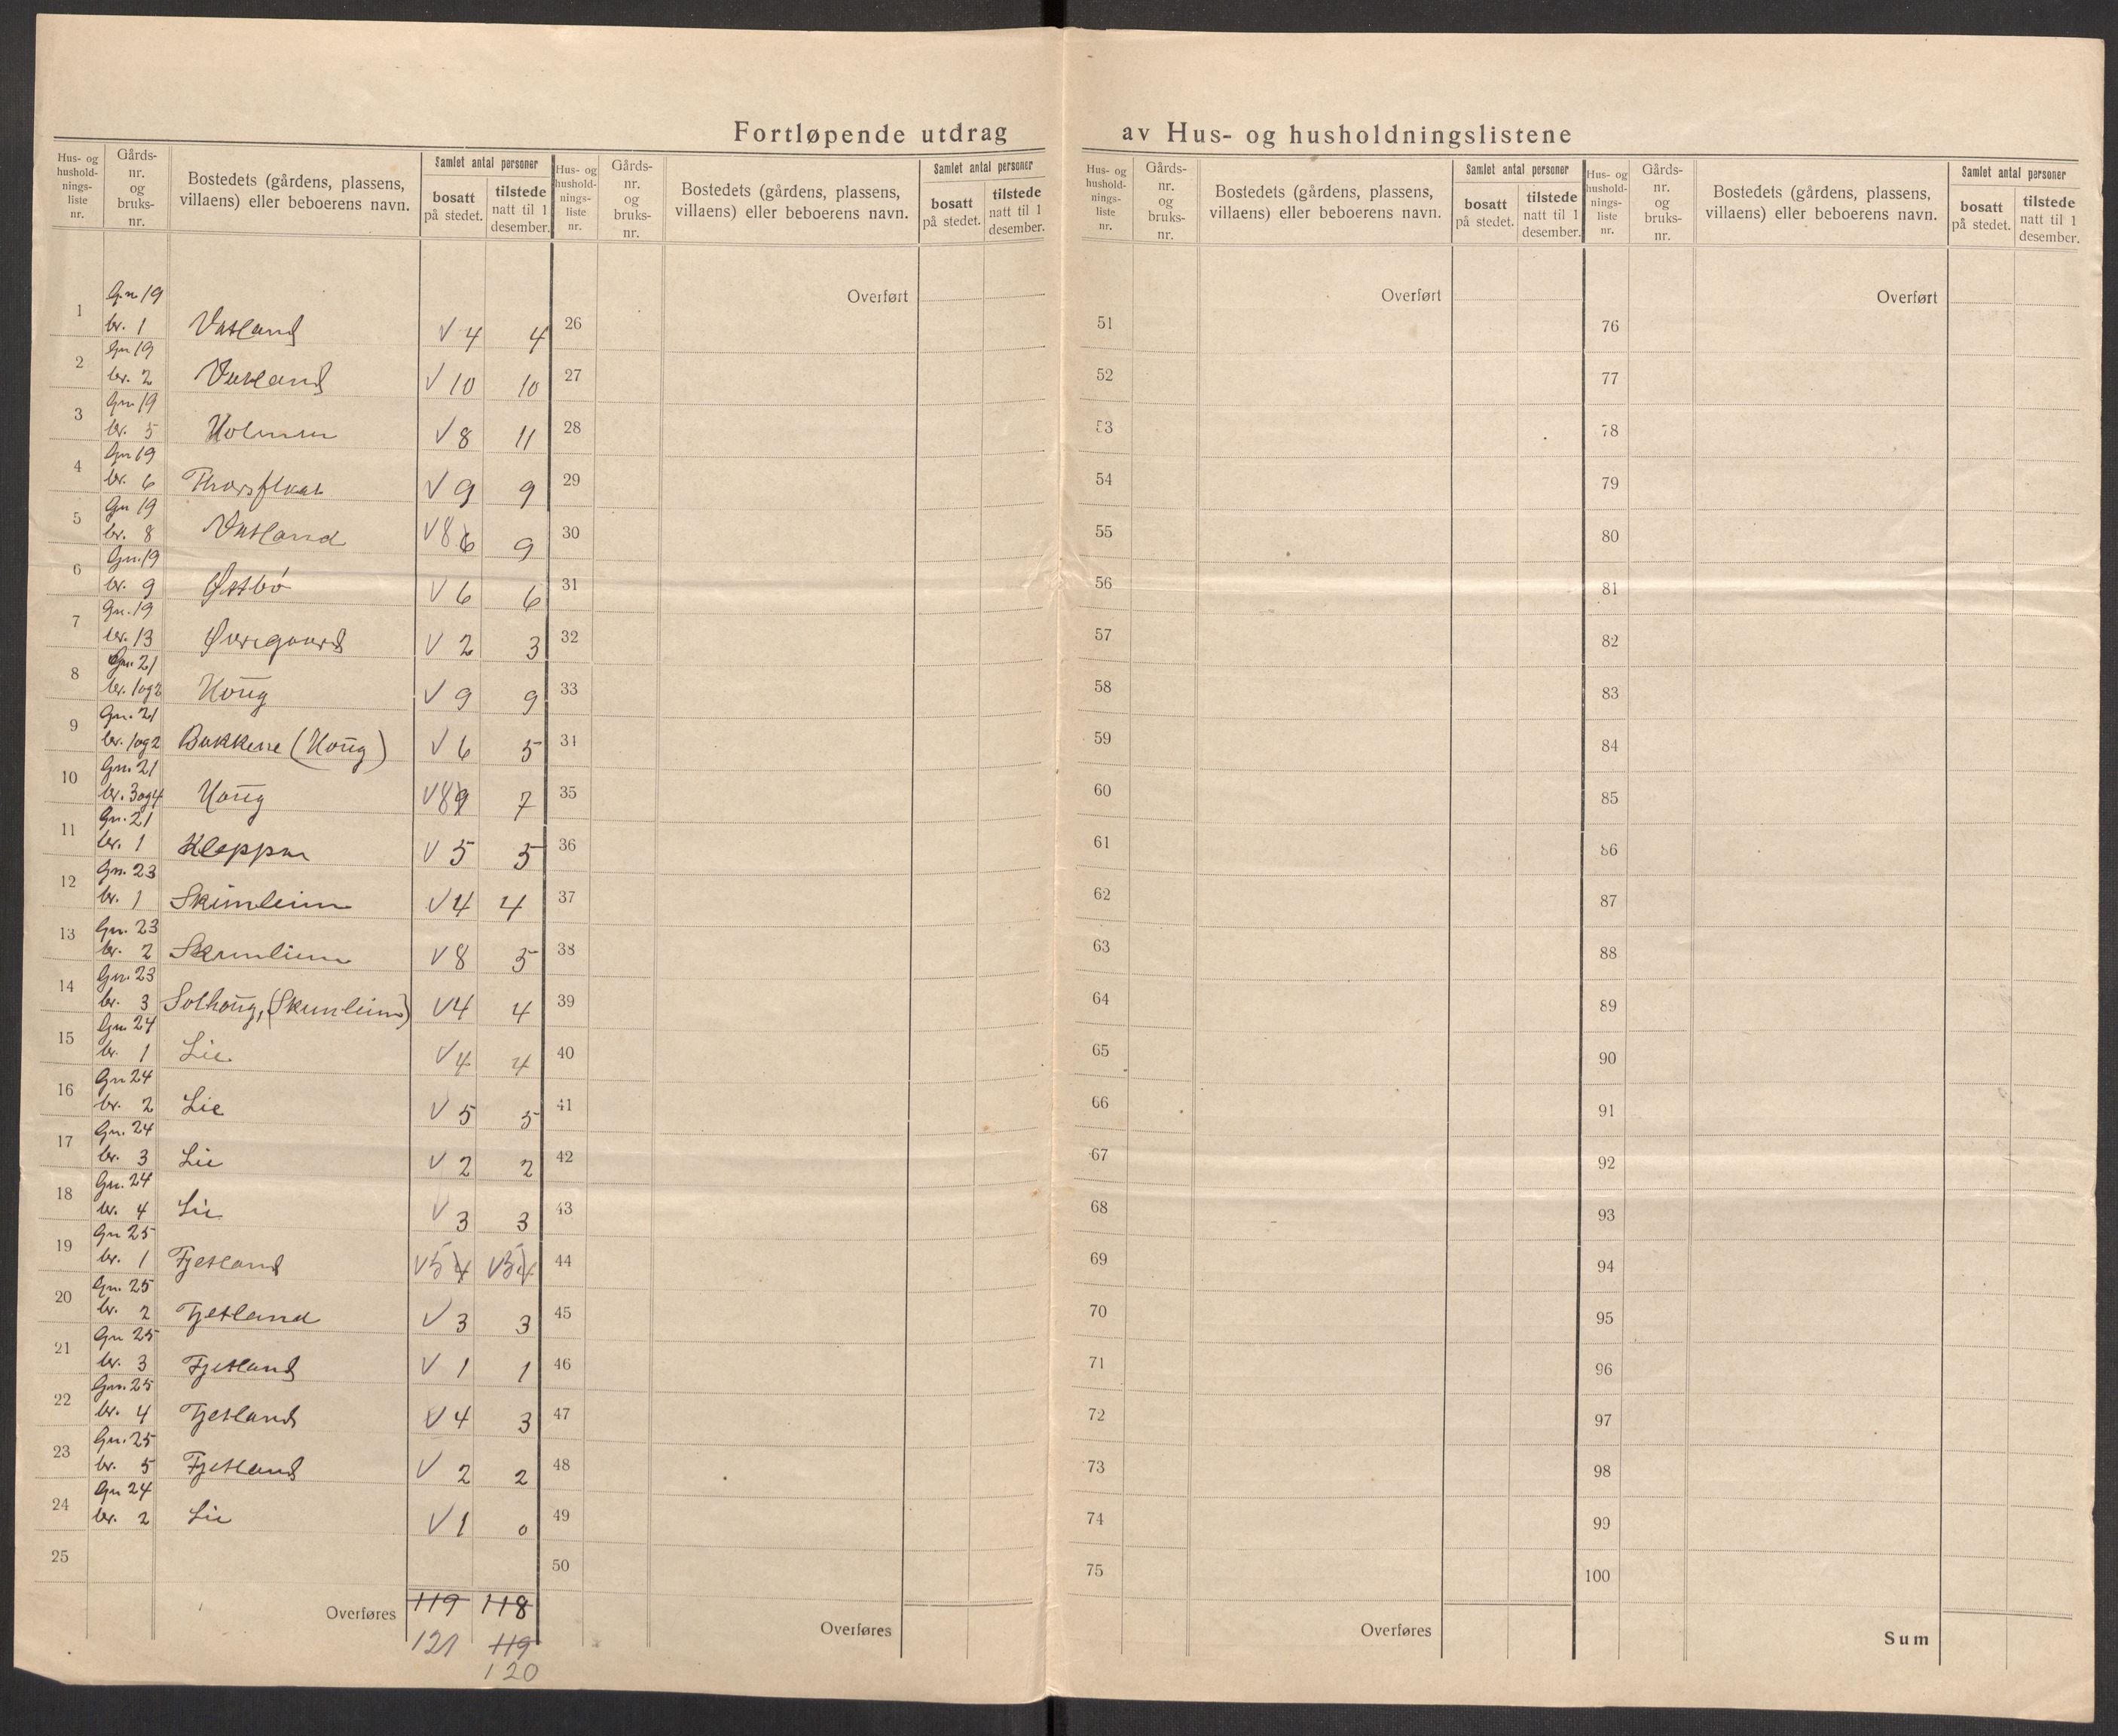 Fortløpende utdrag av Hus- og husholdningslistene
Hus- og hushold-nings-liste nr.
Gårds-nr. og bruks-nr.
Bostedets (gårdens, plassens, villaens) eller beboerens navn.
Samlet antal personer
bosatt på stedet.
tilstede natt til 1 desember.
Hus- og hushold-nings-liste nr.
Gårds-nr. og bruks-nr.
Bostedets (gårdens, plassens, villaens) eller beboerens navn.
Samlet antal personer
bosatt på stedet.
tilstede natt til 1 desember.
Hus- og hushold-nings-liste nr.
Gårds-nr. og bruks-nr.
Bostedets (gårdens, plassens, villaens) eller beboerens navn.
Samlet antal personer
bosatt på stedet.
tilstede natt til 1 desember.
Hus- og hushold-nings-liste nr.
Gårds-nr. og bruks-nr.
Bostedets (gårdens, plassens, villaens) eller beboerens navn.
Samlet antal personer
bosatt på stedet.
tilstede natt til 1 desember.
Overført
Overført
Overført
1 Gn 19 br. 1 Vatland V 4 4 26 51 76
2 Gn 19 br. 2 Vatland V 10 10 27 52 77
3 Gn 19 br. 5 Holmen V 8 11 28 53 78
4 Gn 19 br. 6 V 9 9 29 54 79
5 Gn 19 br. 8 Vatland V 8 6 9 30 55 80
6 Gn. 19 br. 9 Østbø V 6 6 31 56 81
7 Gn. 19 br. 13 Øvregaard V 2 3 32 57 82
8 Gn. 21 br. 1 og 2 Houg V 9 9 33 58 83
9 Gn. 21 br. 1 og 2 Bakkene (Houg) V 6 5 34 59 84
10 Gn. 21 br. 3 og 4 Houg V 8 9 7 35 60 85
11 Gn. 21 br. 1 Kleppen V 5 5 36 61 86
12 Gn. 23 br. 1 Skumleim V 4 4 37 62 87
13 Gn. 23 br. 2 Skumleim V 8 5 38 63 88
14 Gn. 23 br. 3 Solhoug, (Skumleim) V 4 4 39 64 89
15 Gn 24 br. 1 Lie V 4 4 40 65 90
16 Gn 24 br. 2 Lie V 5 5 41 66 91
17 Gn. 24 br. 3 Lie V 2 2 42 67 92
18 Gn. 24 br. 4 Lie V 3 3 43 68 93
19 Gn 25 br. 1 Fjetland V 5 4 V 5 4 44 69 94
20 Gn. 25 br. 2 Fjetland V 3 3 45 70 95
21 Gn 25 br. 3 Fjetland V 1 1 46 71 96
22 Gn. 25 br. 4 Fjetland V 4 3 47 72 97
23 Gn. 25 br. 5 Fjetland V 2 2 48 73 98
24 Gn 24 br. 2 Lie V 1 0 49 74 99
25 50 75 100
Overføres 119 118 Overføres Overføres Sum
121 119
120